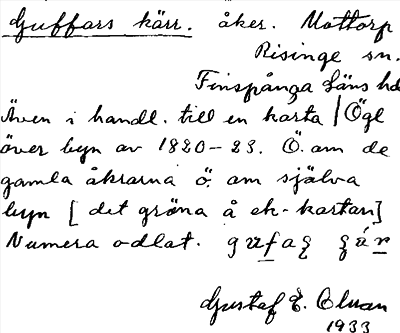 Guffars kärr. åker. Mottorp
Risinge sn.
Finspånga Läns hd
Även i handl. till en karta / Ögl
över byn av 1820-23. Ö. om de
gamla åkrarna ö. om själva
byn [det gröna å ek-kartan]
Numera odlat.
Gustaf E. Olsson
1933